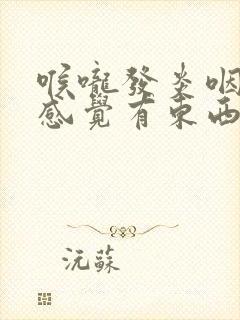 喉嚨發炎咽
感覺有東西
沅蘇